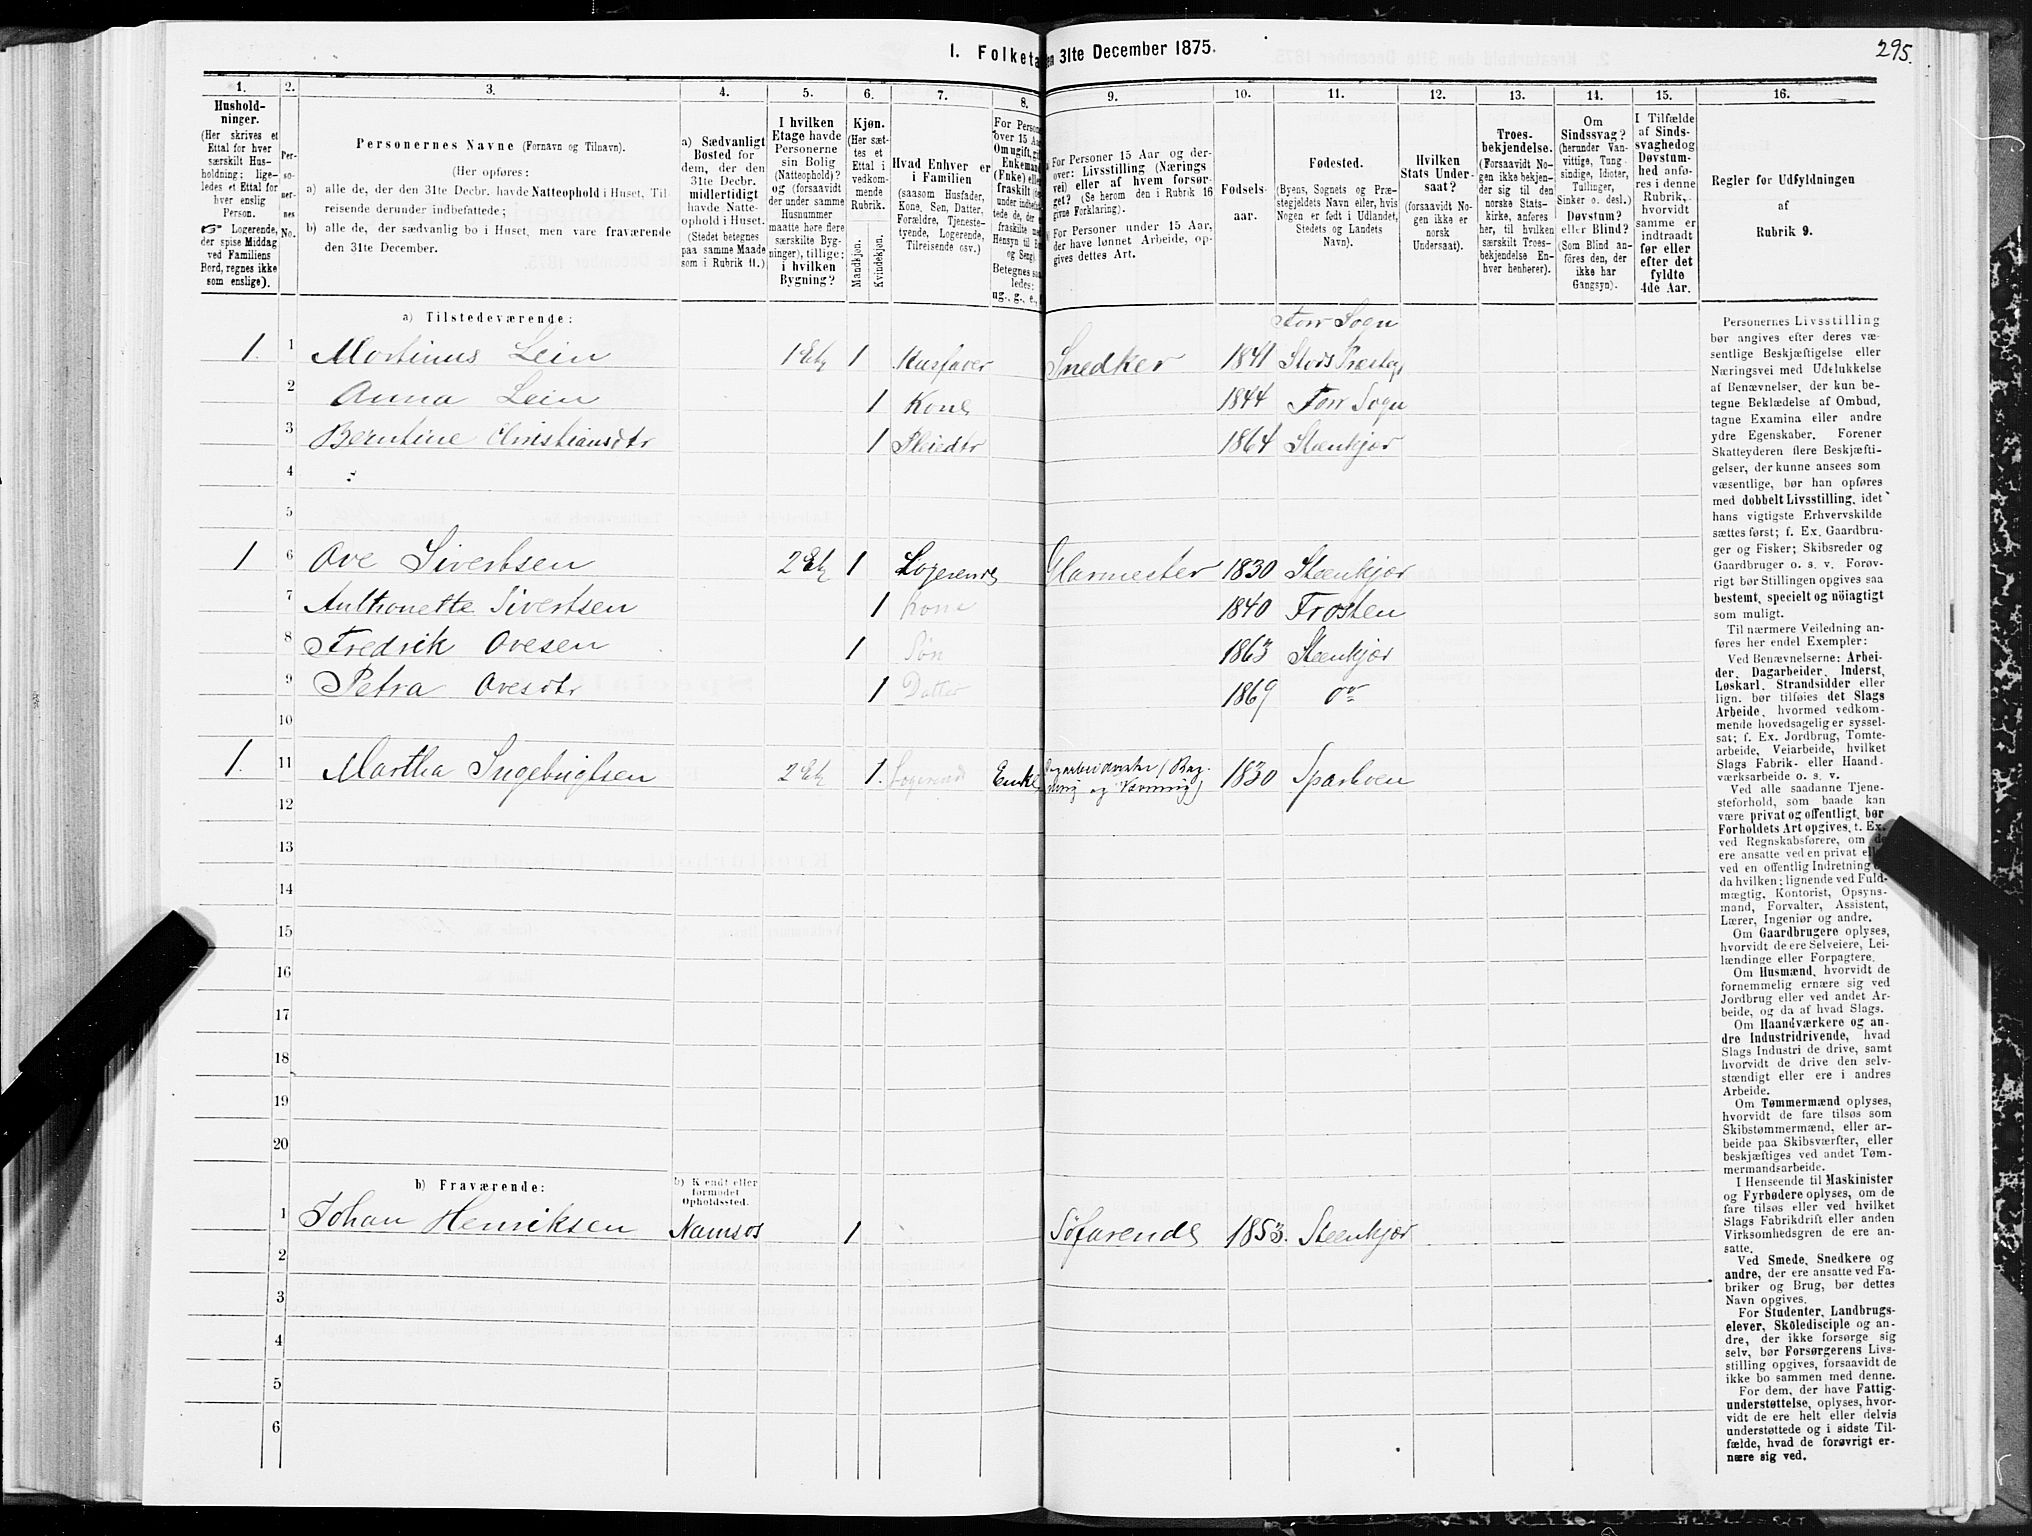 295.
I. Folketæ
en 31te December 1875.
1. 2. 3. 4. 5. 6. 7. 8. 9. 10. 11. 12. 13. 14. 15. 16.
Hushold-
ninger.
(Her skrives et
Ettal for hver
særskilt Hus-
holdning; lige-
ledes et Ettal for
hver enslig
Person.
☞ Logerende,
der spise Middag
ved Familiens
Bord, regnes ikke
som enslige).
Per-
so-
ner-
nes
No.
Personernes Navne (Fornavn og Tilnavn).
(Her opføres:
a) alle de, der den 31te Decbr. havde Natteophold i Huset, Til-
reisende derunder indbefattede;
b) alle de, der sædvanlig bo i Huset, men vare fraværende
den 31te December.
a) Sædvanligt
Bosted for
dem, der den
31te Decbr.
midlertidigt
havde Natte-
ophold i Huset.
(Stedet betegnes
paa samme Maade
som i Rubrik 11.)
I hvilken
Etage havde
Personerne
sin Bolig
(Natteophold)?
og (forsaavidt
der under samme
Husnummer
maatte høre flere
særskilte Byg-
ninger), tillige:
i hvilken
Bygning?
Kjøn.
(Her sæt-
tes et
Ettal i
vedkom-
mende
Rubrik.
Mandkjøn.
Kvindekjøn.
Hvad Enhver er
i Familien
(saasom Husfader,
Kone, Søn, Datter,
Forældre, Tjeneste-
tyende, Logerende,
Tilreisende osv.)
For Person
over 15 Aar
Om ugift, gift
Enkemand
(Enke) eller
fraskilt
Hensyn til B
og Seng)
Betegnes saa
ledes:
ug., g., e.,
For Personer 15 Aar og der-
over: Livsstilling (Nærings
vei) eller af hvem forsør-
get? (Se herom den i Rubrik 16
givne Forklaring).
For Personer under 15 Aar,
der have lønnet Arbeide, op-
gives dettes Art.
Fødsels-
aar.
Fødested.
(Byens, Sognets og Præ-
stegjeldets Navn eller, hvis
Nogen er født i Udlandet,
Stedets og Landets
Navn).
Hvilken
Stats Under-
saat?
(forsaavidt No-
gen ikke er
norsk
Undersaat).
Troes-
bekjendelse.
(Forsaavidt No-
gen ikke bekjen-
der sig til den
norske Stats-
kirke, anføres
her, til hvilken
særskilt Troes-
bekjendelse En-
hver henhører).
Om
Sindssvag?
(herunder Van-
vittige, Tung-
sindige, Idioter,
Tullinger,
Sinker o. desl.)
Døvstum?
eller Blind?
(Som Blind an-
føres den, der
ikke har
Gangsyn).
I Tilfælde
af Sinds-
svaghed og
Døvstum-
hed anfø-
res i denne
Rubrik,
hvorvidt
samme er
indtraadt
før eller
efter det
fyldte
4de Aar.
Regler for Udfyldningen
af
Rubrik 9.
a) Tilstedeværende:
Forr Sogn
1. 1 Mortinus Lein 1 Etg 1 Husfader Snedker 1841 Stods Præsteg
2 Anna Lein 1 Kone 1844 Forr Sogn
3 Berntine Christiansdtr 1 Pleiedtr 1864 Stenkjær
4
5
1 6 Ove Sivertsen 2 Etg 1 Logerende Glarmester 1830 Stenkjær
7 Anthonette Sivertsen 1 Kone 1840 Frosten
8 Fredrik Ovesen 1 Søn 1863 Stenkjær
9 Petra Ovesdtr 1 Datter 1869 do
10
1. 11 Martha Ingebrigtsen 2 Etg 1. Logerende Enke 1830 Sparboen
12
13
14
15
16
17
18
19
20
b) Fraværende:
b) Kjendt eller
formodet
Opholdssted.
1 Johan Henriksen Namsos 1 Søfarende 1853. Steenkjær
2
3
4
5
6
Personernes Livsstilling
bør angives efter deres væ-
sentlige Beskjæftigelse eller
Næringsvei med Udelukkelse
af Benævnelser, der kun be-
tegne Beklædelse af Ombud,
tagne Examina eller andre
ydre Egenskaber. Forener
Skatteyderen flere Beskjæfti-
gelser, der kunne ansees som
væsentlige, bør han opføres
med dobbelt Livsstilling, idet
hans vigtigste Erhvervskilde
sættes først; f. Ex. Gaardbru-
ger og Fisker; Skibsreder og
Gaardbruger o. s. v. Forøv-
rigt bør Stillingen opgives saa
bestemt, specielt og nöiagtigt
som muligt.
Til nærmere Veiledning an-
føres her endel Exempler:
Ved Benævnelserne: Arbei-
der, Dagarbeider, Inderst,
Løskarl, Strandsidder eller
lign. bør tilføies det Slags
Arbeide, hvormed vedkom-
mende hovedsagelig er syssel-
sat; f. Ex. Jordbrug, Tomte-
arbeide, Veiarbeide, hvilket
Slags Fabrik- eller Haand-
værksarbeide o. s. v.
Ved alle saadanne Tjene-
steforhold, som baade kan
være privat og offentligt, bør
Forholdets Art opgives, t. Ex.
ved Regnskabsførere, om de
ere ansatte ved en privat eller
ved en offentlig Indretning og
da hvilken; lignende ved Fuld-
mægtig, Kontorist, Opsyns-
mand, Forvalter, Assistent,
Lærer, Ingeniør og andre.
Om Gaardbrugere oplyses,
hvorvidt de ere Selveiere, Lei-
lændinge eller Forpagtere.
Om Husmænd, hvorvidt de
fornemmelig ernære sig ved
Jordbrug eller ved andet Ar-
beide, og da af hvad Slags.
Om Haandværkere og an-
dre Industridrivende, hvad
Slags Industri de drive, samt
hvorvidt de drive den selv-
stændigt eller ere i andres
Arbeide.
Om Tømmermænd oplyses,
hvorvidt de fare tilsøs som
Skibstømmermænd, eller ar-
beide paa Skibsværfter, eller
beskjæftiges ved andet Tøm-
mermandsarbeide.
I Henseende til Maskinister
og Fyrbødere oplyses, om de
fare tilsøs eller ved hvilket
Slags Fabrikdrift eller anden
Virksomhedsgren de ere an-
satte.
Ved Smede, Snedkere og
andre, der ere ansatte ved Fa-
briker og Brug, bør dettes
Navn opgives.
For Studenter, Landbrugs-
elever, Skoledisciple og an-
dre, der ikke forsørge sig
selv, bør Forsørgerens Livs-
stilling opgives, forsaavidt de
ikke bo sammen med denne.
For dem, der have Fattig-
understøttelse, oplyses, hvor-
vidt de ere helt eller delvis
understøttede og i sidste Til-
fælde, hvad de forøvrigt er-
nære sig ved.